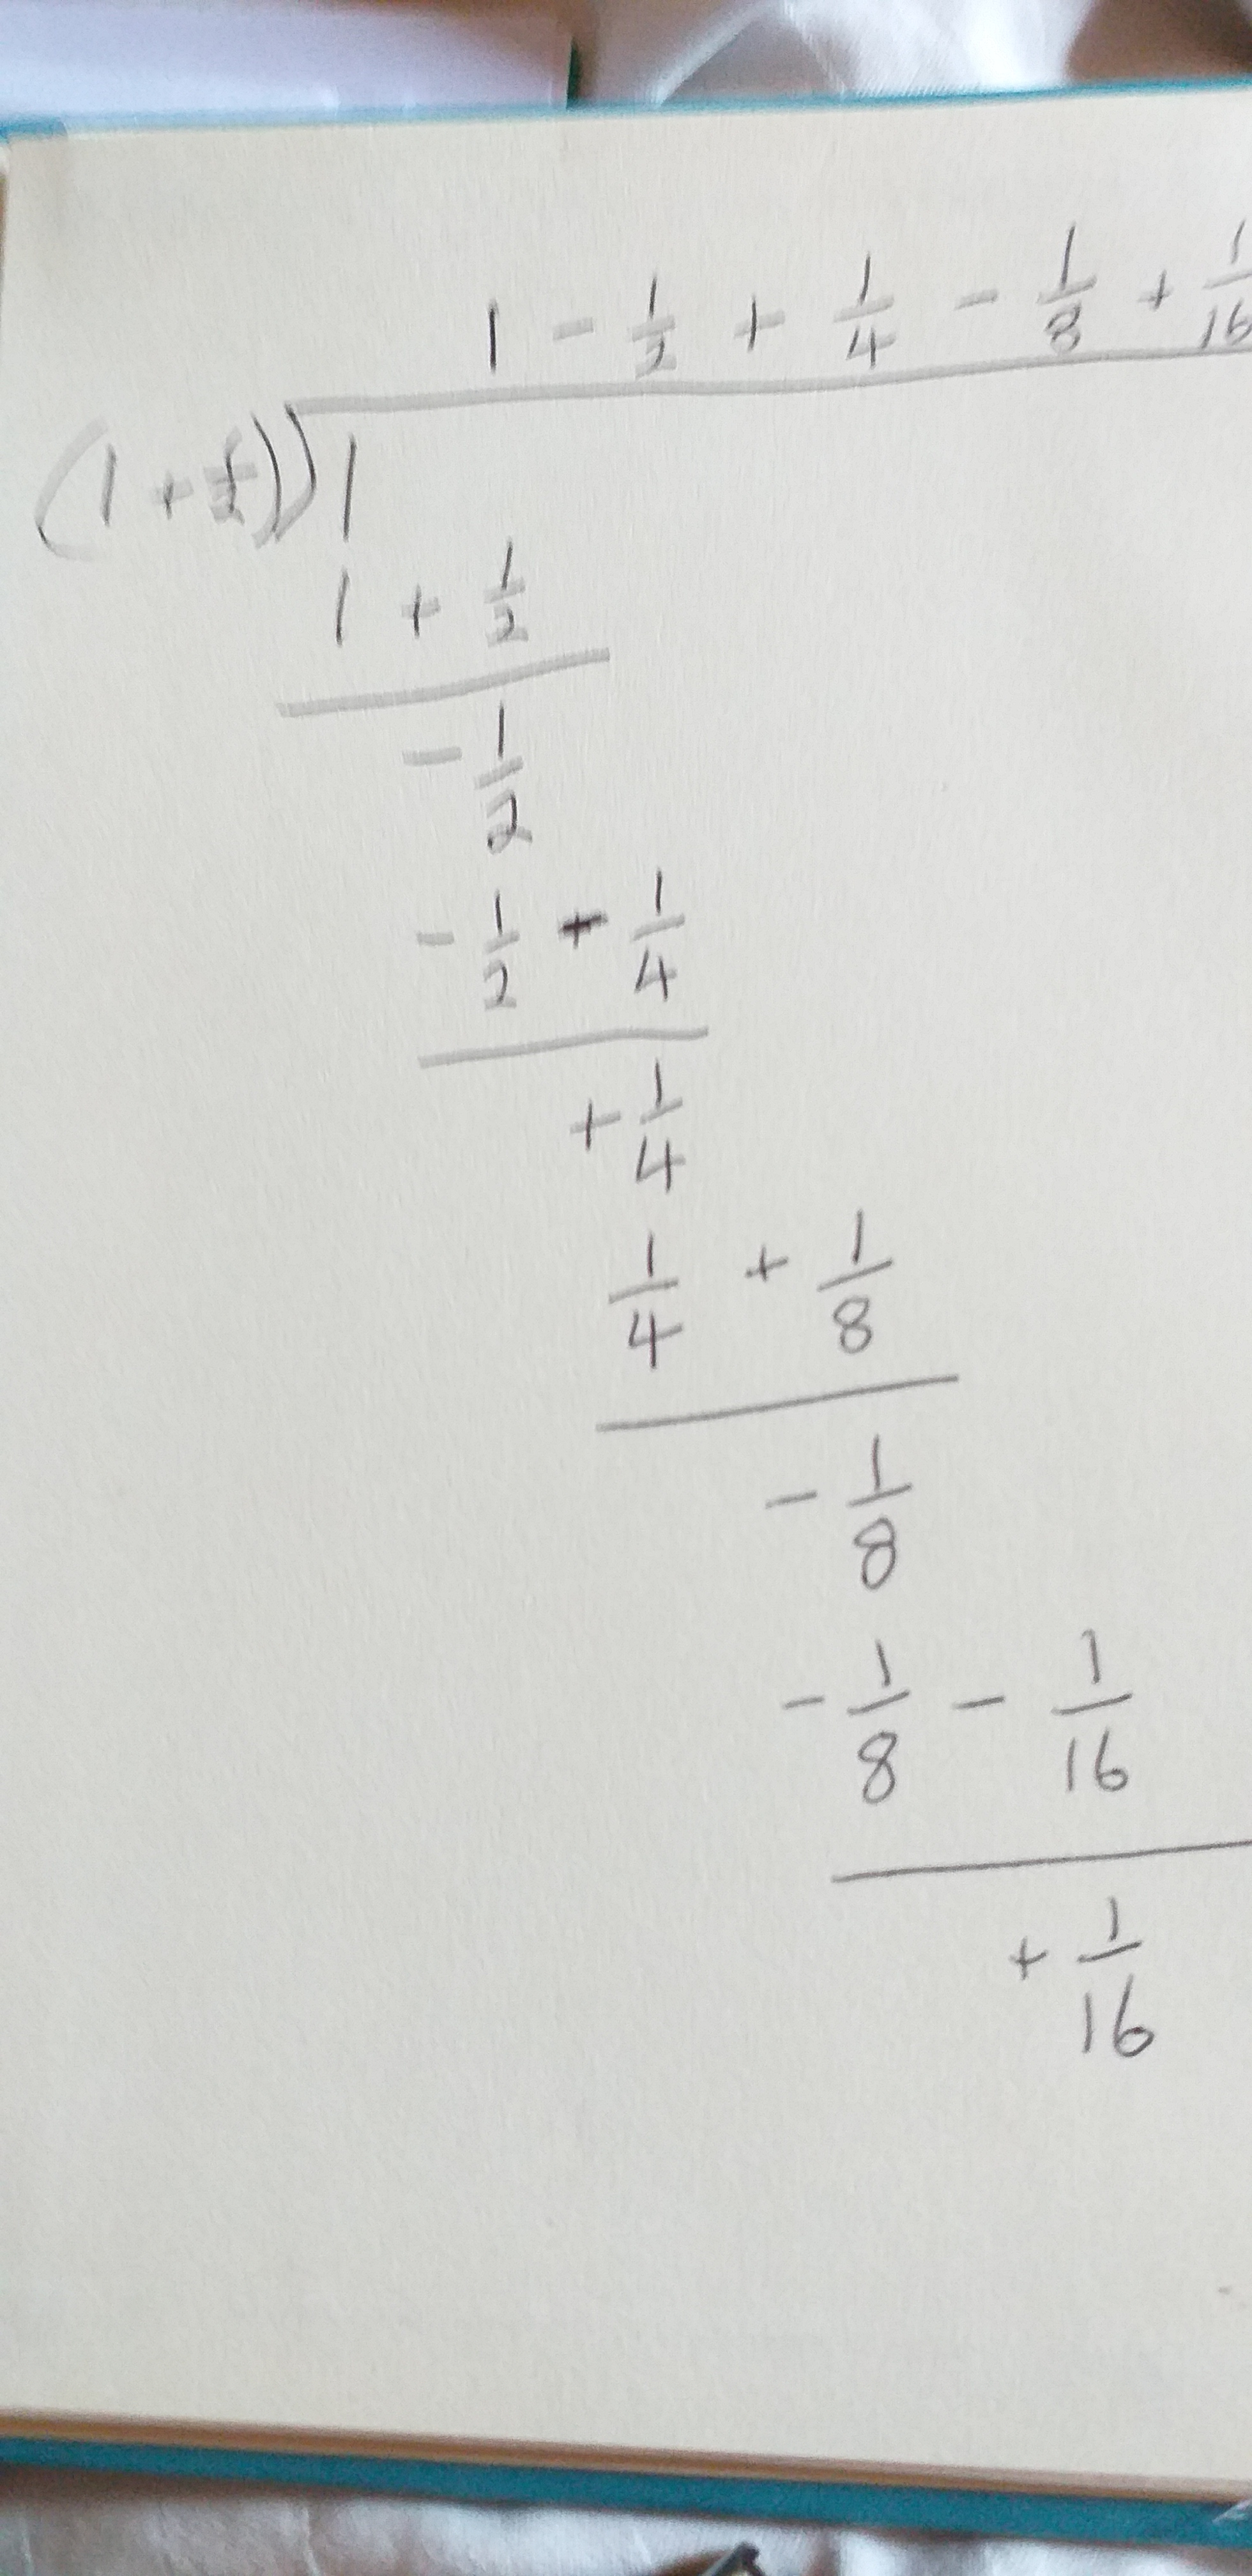 1 - 1/2 + 1/4 - 1/8 + 1/16
(1 + 1/2)) 1
1 + 1/2
- 1/2
- 1/2 - 1/4
+ 1/4
1/4 + 1/8
- 1/8
- 1/8 - 1/16
+ 1/16